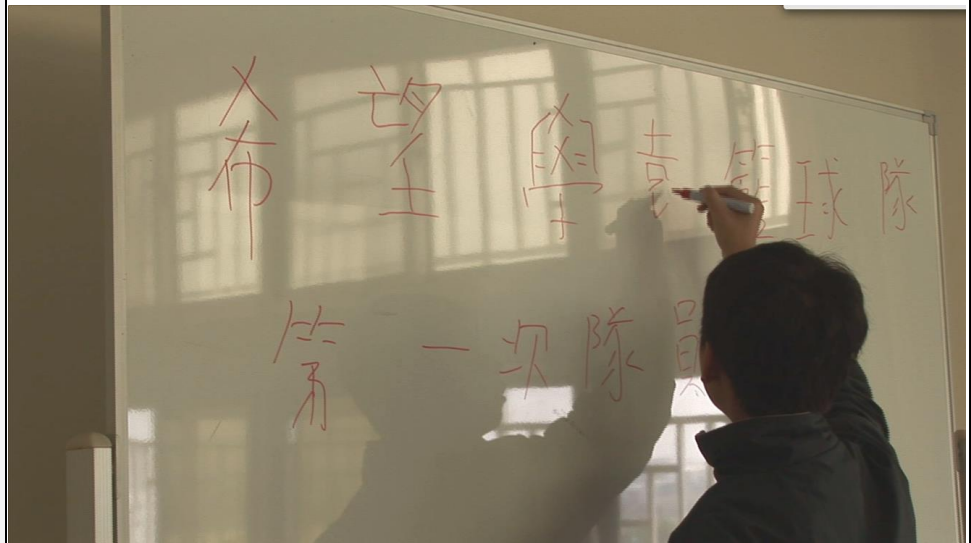 希望學袁籃球隊
第一次隊員